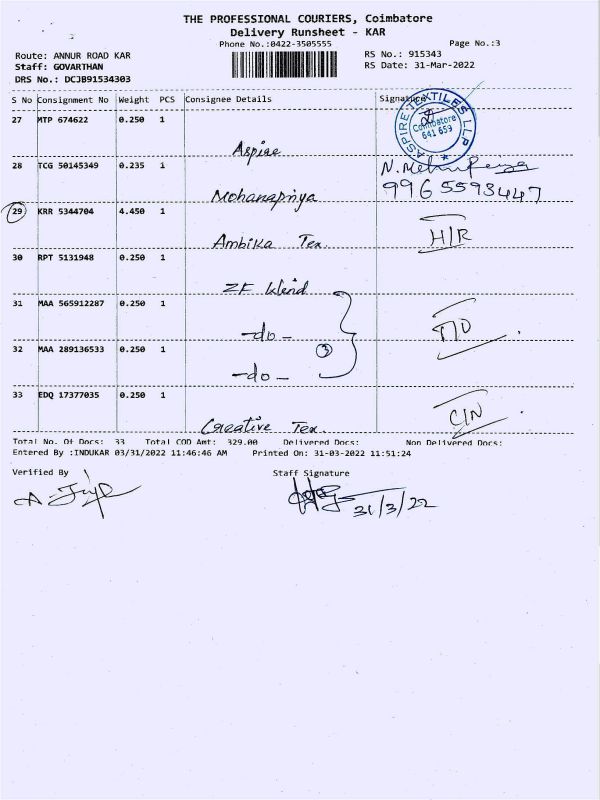 THE PROFESSIONAL COURIERS, Coimbatore
Delivery Runsheet - KAR
Phone No.:0422-3505555 Page No.:3
Route: ANNUR ROAD KAR RS No.: 915343
Staff: GOVARTHAN RS Date: 31-Mar-2022
DRS No.: DCJB91534303
S No Consignment No Weight PCS Consignee Details Signature
ASPIRE TEXTILES LLP
Coimbatore
641 659
27 MTP 674622 0.250 1
Aspire
28 TCG 50145349 0.235 1
9965593447
Mohanapriya
29 KRR 5344704 4.450 1
H/R
Ambika Tex.
30 RPT 5131948 0.250 1
ZF Wind
31 MAA 565912287 0.250 1
-do-
3
32 MAA 289136533 0.250 1
-do-
33 EDQ 17377035 0.250 1
C/N
Creative Tex.
Total No. Of Docs: 33 Total COD Amt: 329.00 Delivered Docs: Non Delivered Docs:
Entered By :INDUKAR 03/31/2022 11:46:46 AM Printed On: 31-03-2022 11:51:24
Verified By Staff Signature
31/3/22